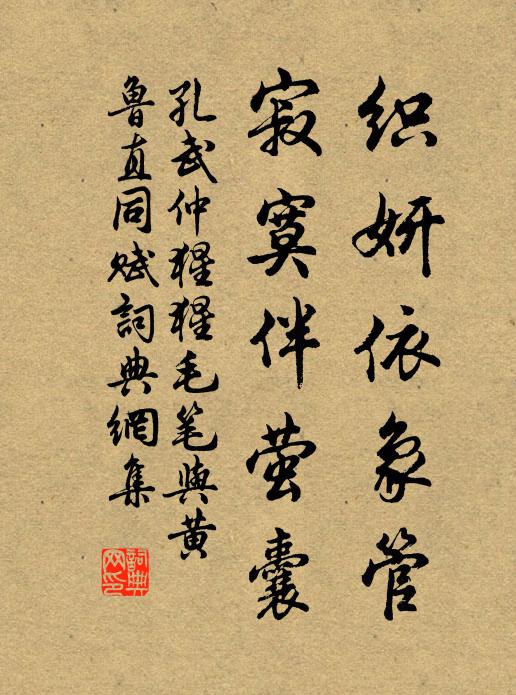 织妍依象管
寂寞伴萤囊
孔武仲猩猩毛笔與黄
魯直同赋詞典網集
詞典网印